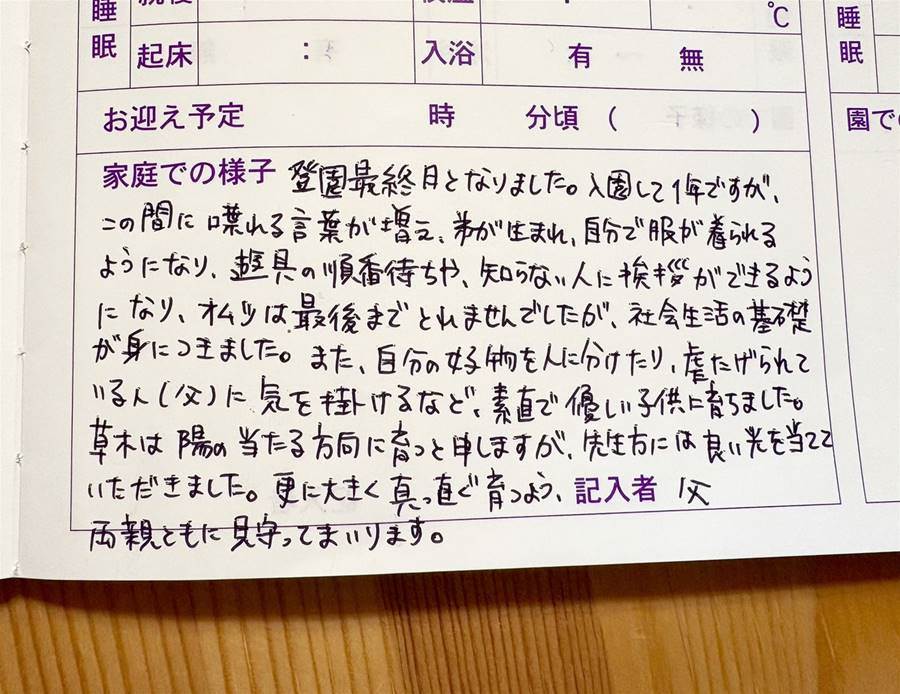 睡眠
℃
睡眠
起床 : 入浴 有 無
お迎え予定 時 分頃 ( )
園で
家庭での様子 登園最終月となりました。入園して1年ですが、
この間に喋れる言葉が増え、弟が生まれ、自分で服が着られる
ようになり、遊具の順番待ちや、知らない人に挨拶ができるよう
になり、オムツは最後までとれませんでしたが、社会生活の基礎
が身につきました。また、自分の好物を人に分けたり、虐たげられて
いる人(父)に気を掛けるなど、素直で優しい子供に育ちました。
草木は陽の当たる方向に育つと申しますが、先生方には良い光を当てて
いただきました。更に大きく真っ直ぐ育つよう、記入者 父
両親ともに見守ってまいります。